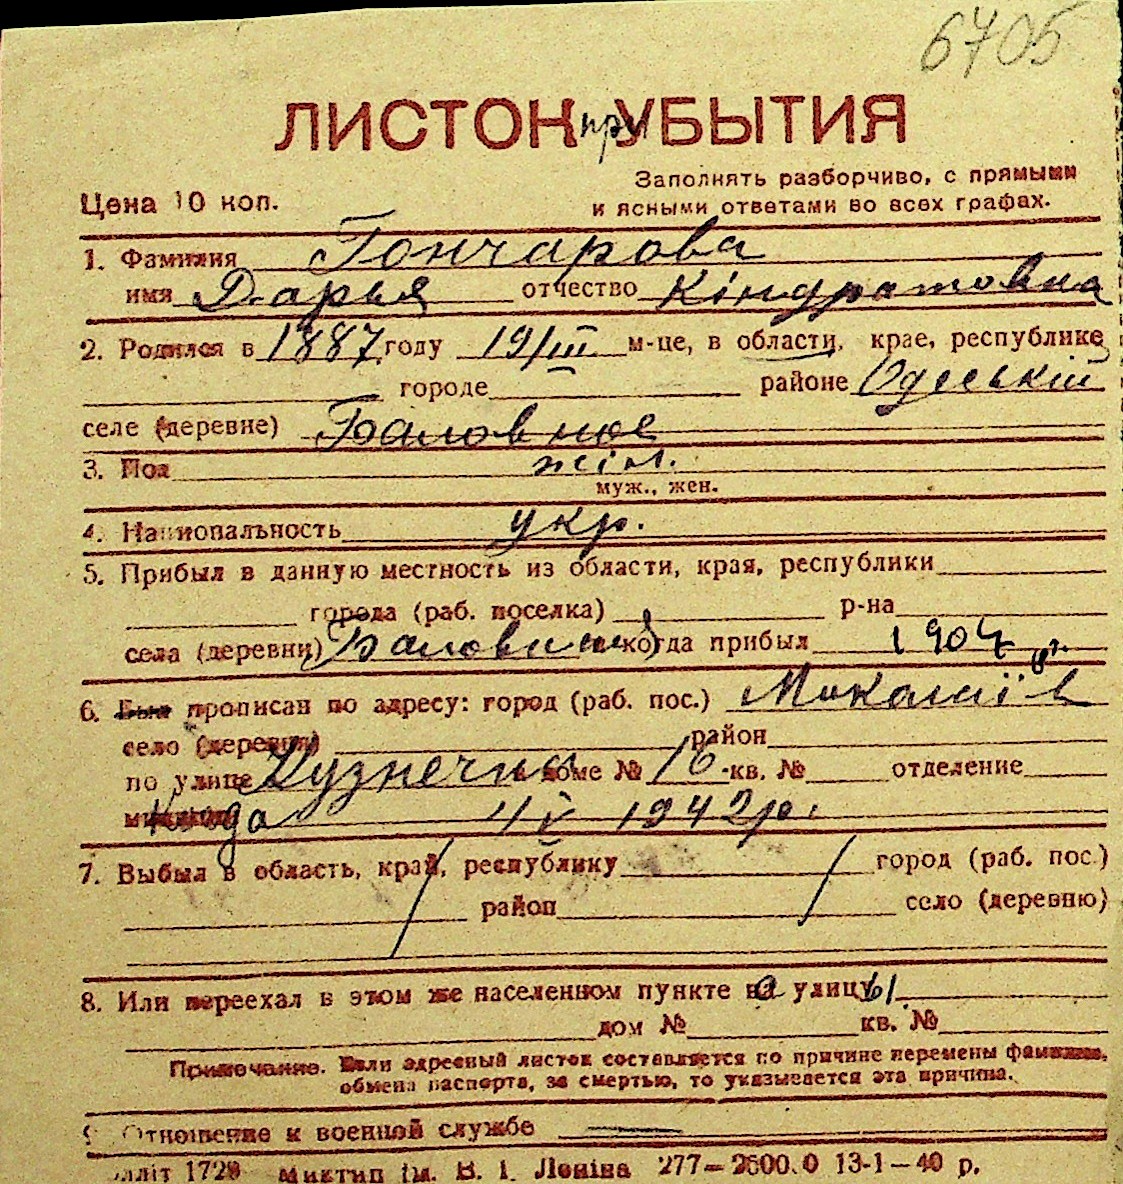 6705
ЛИСТОК при УБЫТИЯ
Заполнять разборчиво, с прямыми
Цена 10 коп. и ясными ответами во всех графах.
1. Фамилия Гончарова
имя Дарья отчество Кіндратовна
2. Родился в 1887 году 19/III м-це, в области, крае, республике
городе районе Одеській
селе (деревне) Баловное
3. Пол жін.
муж., жен.
4. Национальность укр.
5. Прибыл в данную местность из области, края, республики
города (раб. поселка) р-на
села (деревни) когда прибыл 1904
6. Был прописан по адресу: город (раб. пос.) Миколаїв
село (деревня) район
по улице Кузнечна в доме № 16 кв. № отделение
Когда 1942 р.
7. Выбыл в область, край, республику город (раб. пос.)
район село (деревню)
8. Или переехал в этом же населенном пункте на улицу
дом № кв. №
Примечание. Если адресный листок составляется по причине перемены фамилии,
обмена паспорта, за смертью, то указывается эта причина.
9. Отношение к военной службе
1728 Миктип ім. В. І. Леніна 277— 13-1—40 р.